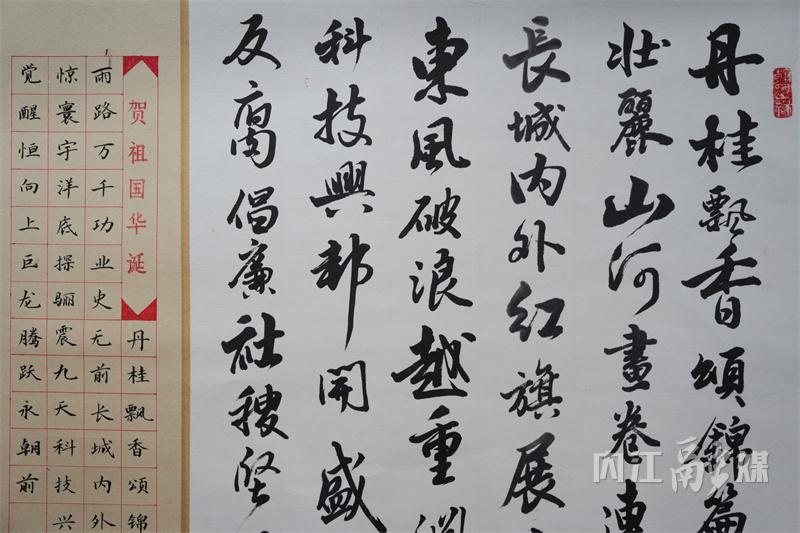 丹桂飄香頌錦篇
壯麗山河畫卷連
長城内外红旗展
東風破浪越重
科技興邦開盛
反腐倡廉社稷坚
贺祖国华诞
丹桂飘香颂锦
雨路万千功业史无前长城内外
惊寰宇洋底探骊震九天科技兴
觉醒恒向上巨龙腾跃永朝前
内江融媒